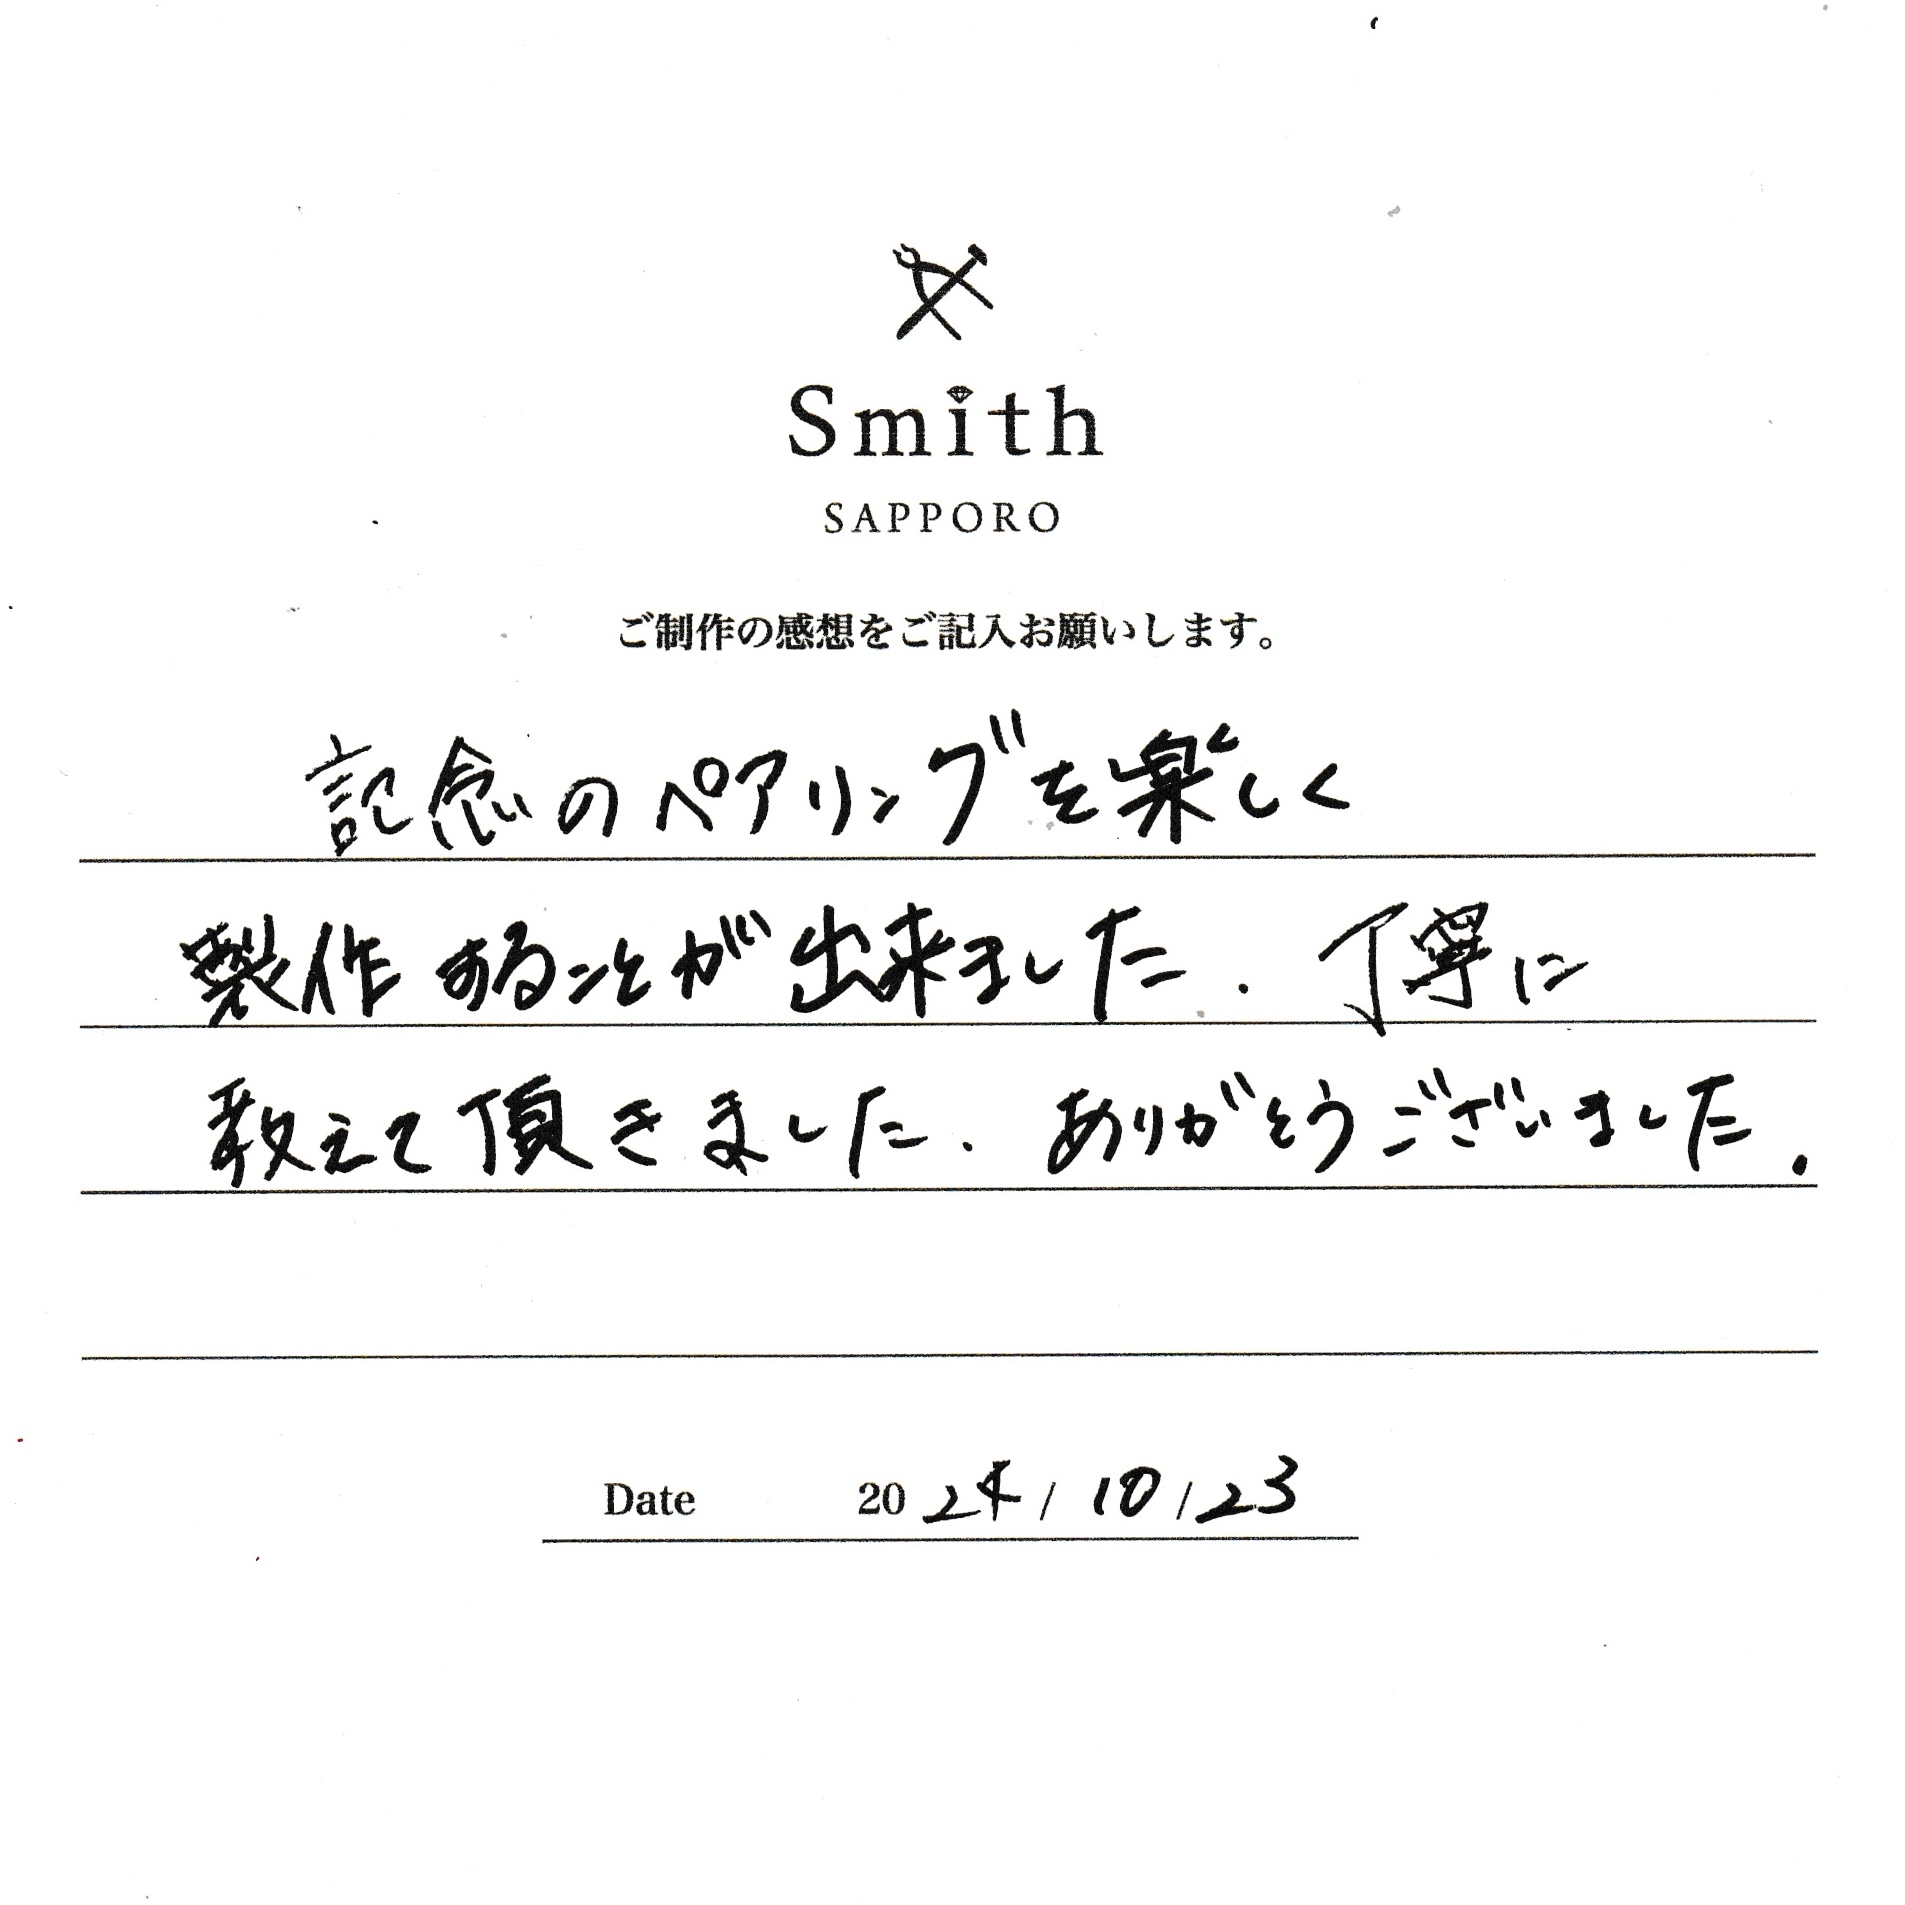 Smith
SAPPORO
ご制作の感想をご記入お願いします。
記念のペアリングを楽しく
製作することが出来ました. 丁寧に
教えて頂きました. ありがとうございました.
Date 2024/10/23